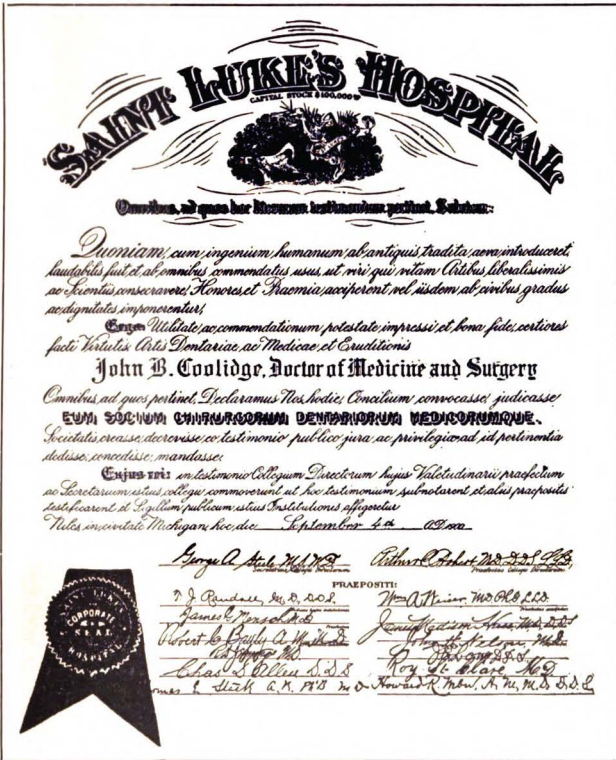 SAINT LUKE'S HOSPITAL
CAPITAL STOCK $100,000
Omnibus, ad quos hoc litterarum testimonium pertinet, Salutem:
Quoniam, cum ingenium humanum, ab antiquis, tradita, aeva, introduceret,
laudabilis fuit, et, ab omnibus commendatus, usus, ut, viri, qui, vitam, Artibus, liberalissimis
ac Scientiis, consecravere, Honores, et Praemia, acciperent, vel iisdem, ab, civibus, gradus
ac, dignitates, imponerentur,
Ergo Utilitate, ac, commendationum potestate, impressi, et, bona, fide, certiores
facti Virtutis, Artis Dentariae, ac Medicae, et Eruditionis
John B. Coolidge, Doctor of Medicine and Surgery
Omnibus, ad, quos, pertinet, Declaramus Nos, hodie, Concilium, convocasse, judicasse
EUM SOCIUM CHIRURGORUM DENTARIORUM MEDICORUMQUE.
Societatis, creasse, decrevisse, eo, testimonio publico, jura, ac privilegia, ad id, pertinentia
dedisse, concedisse, mandasse;
Cujus rei: in, testimonio Collegium Directorum hujus Valetudinarii praefectum
ac Secretarium, istius, collegii commoverunt ut hoc testimonium, subnotarent, et, aliis praepositis
testificarent, et Sigillum publicum, istius Institutiones, affigeretur
Niles, in, civitate Michigan, hoc, die September 4th AD
George A
Arthur C M.D. D.D.S.
PRAEPOSITI:
T. J. Randall D.D.S.
Wm A M.D. PhD. LLD.
James M.D.
James Madison M.D. D.D.S.
Robert C
John H. Nelson M.D.
Chas S Allen D.D.S
Roy M.D.
A.M. M.D.
Howard R. A.M. M.D. D.D.S.
SAINT LUKE'S
CORPORATE
SEAL
HOSPITAL